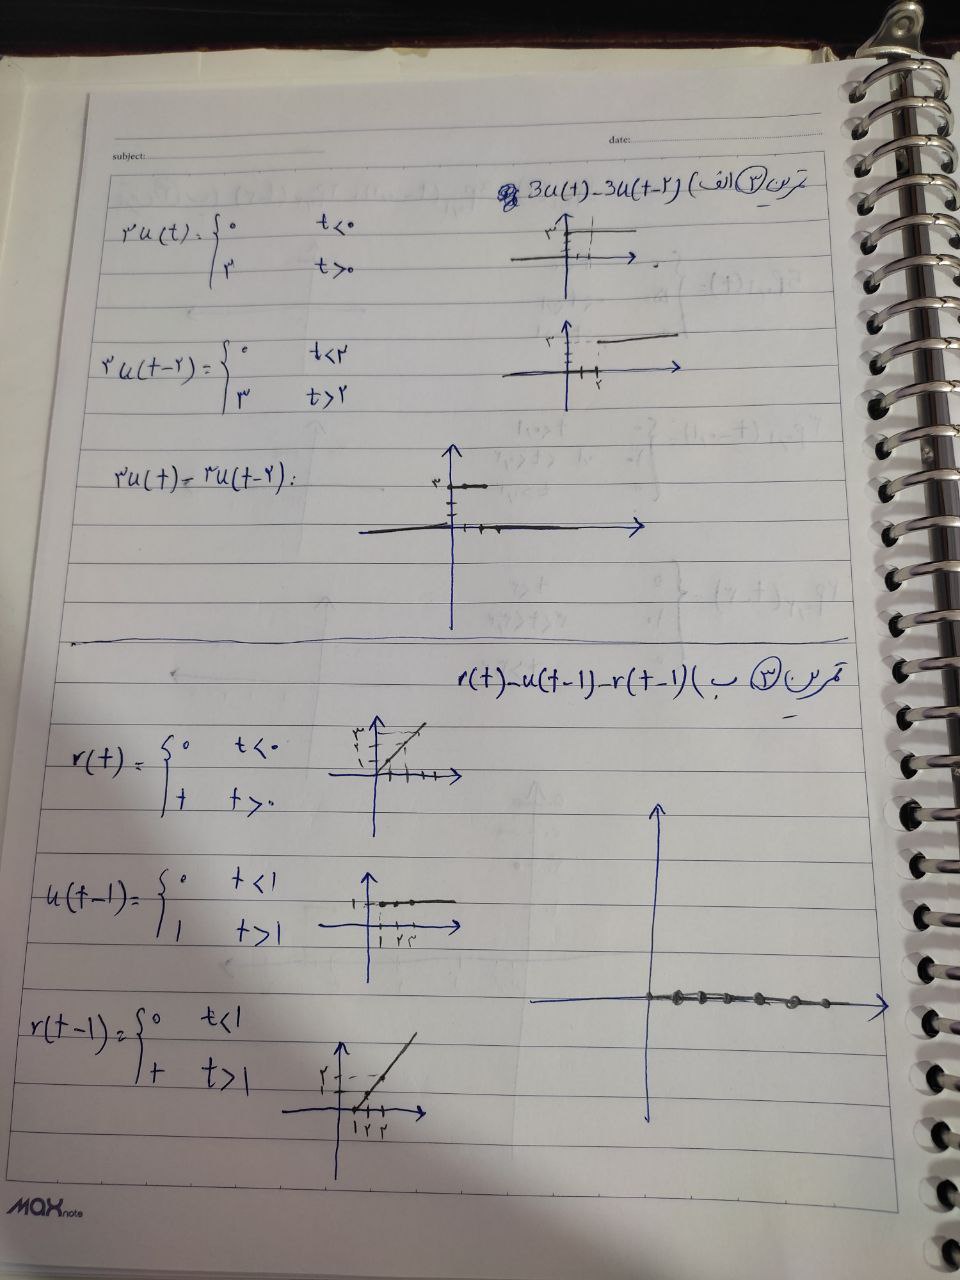 subject:
date:
تمرین ③ الف) 3u(t)-3u(t-۲)
۳u(t)= { ۰ t<۰
۳ t>۰
۳
۳u(t-۲)= { ۰ t<۲
۳ t>۲
۳
۲
۳u(t)-۳u(t-۲):
۳
تمرین ③ ب) r(t)-u(t-1)-r(t-1)
r(t)= { ۰ t<۰
t t>۰
۳
۲
۱
u(t-1)= { ۰ t<1
1 t>1
۱
۱ ۲ ۳
r(t-1)= { ۰ t<1
t t>1
۲
۱ ۲ ۳
MAX note